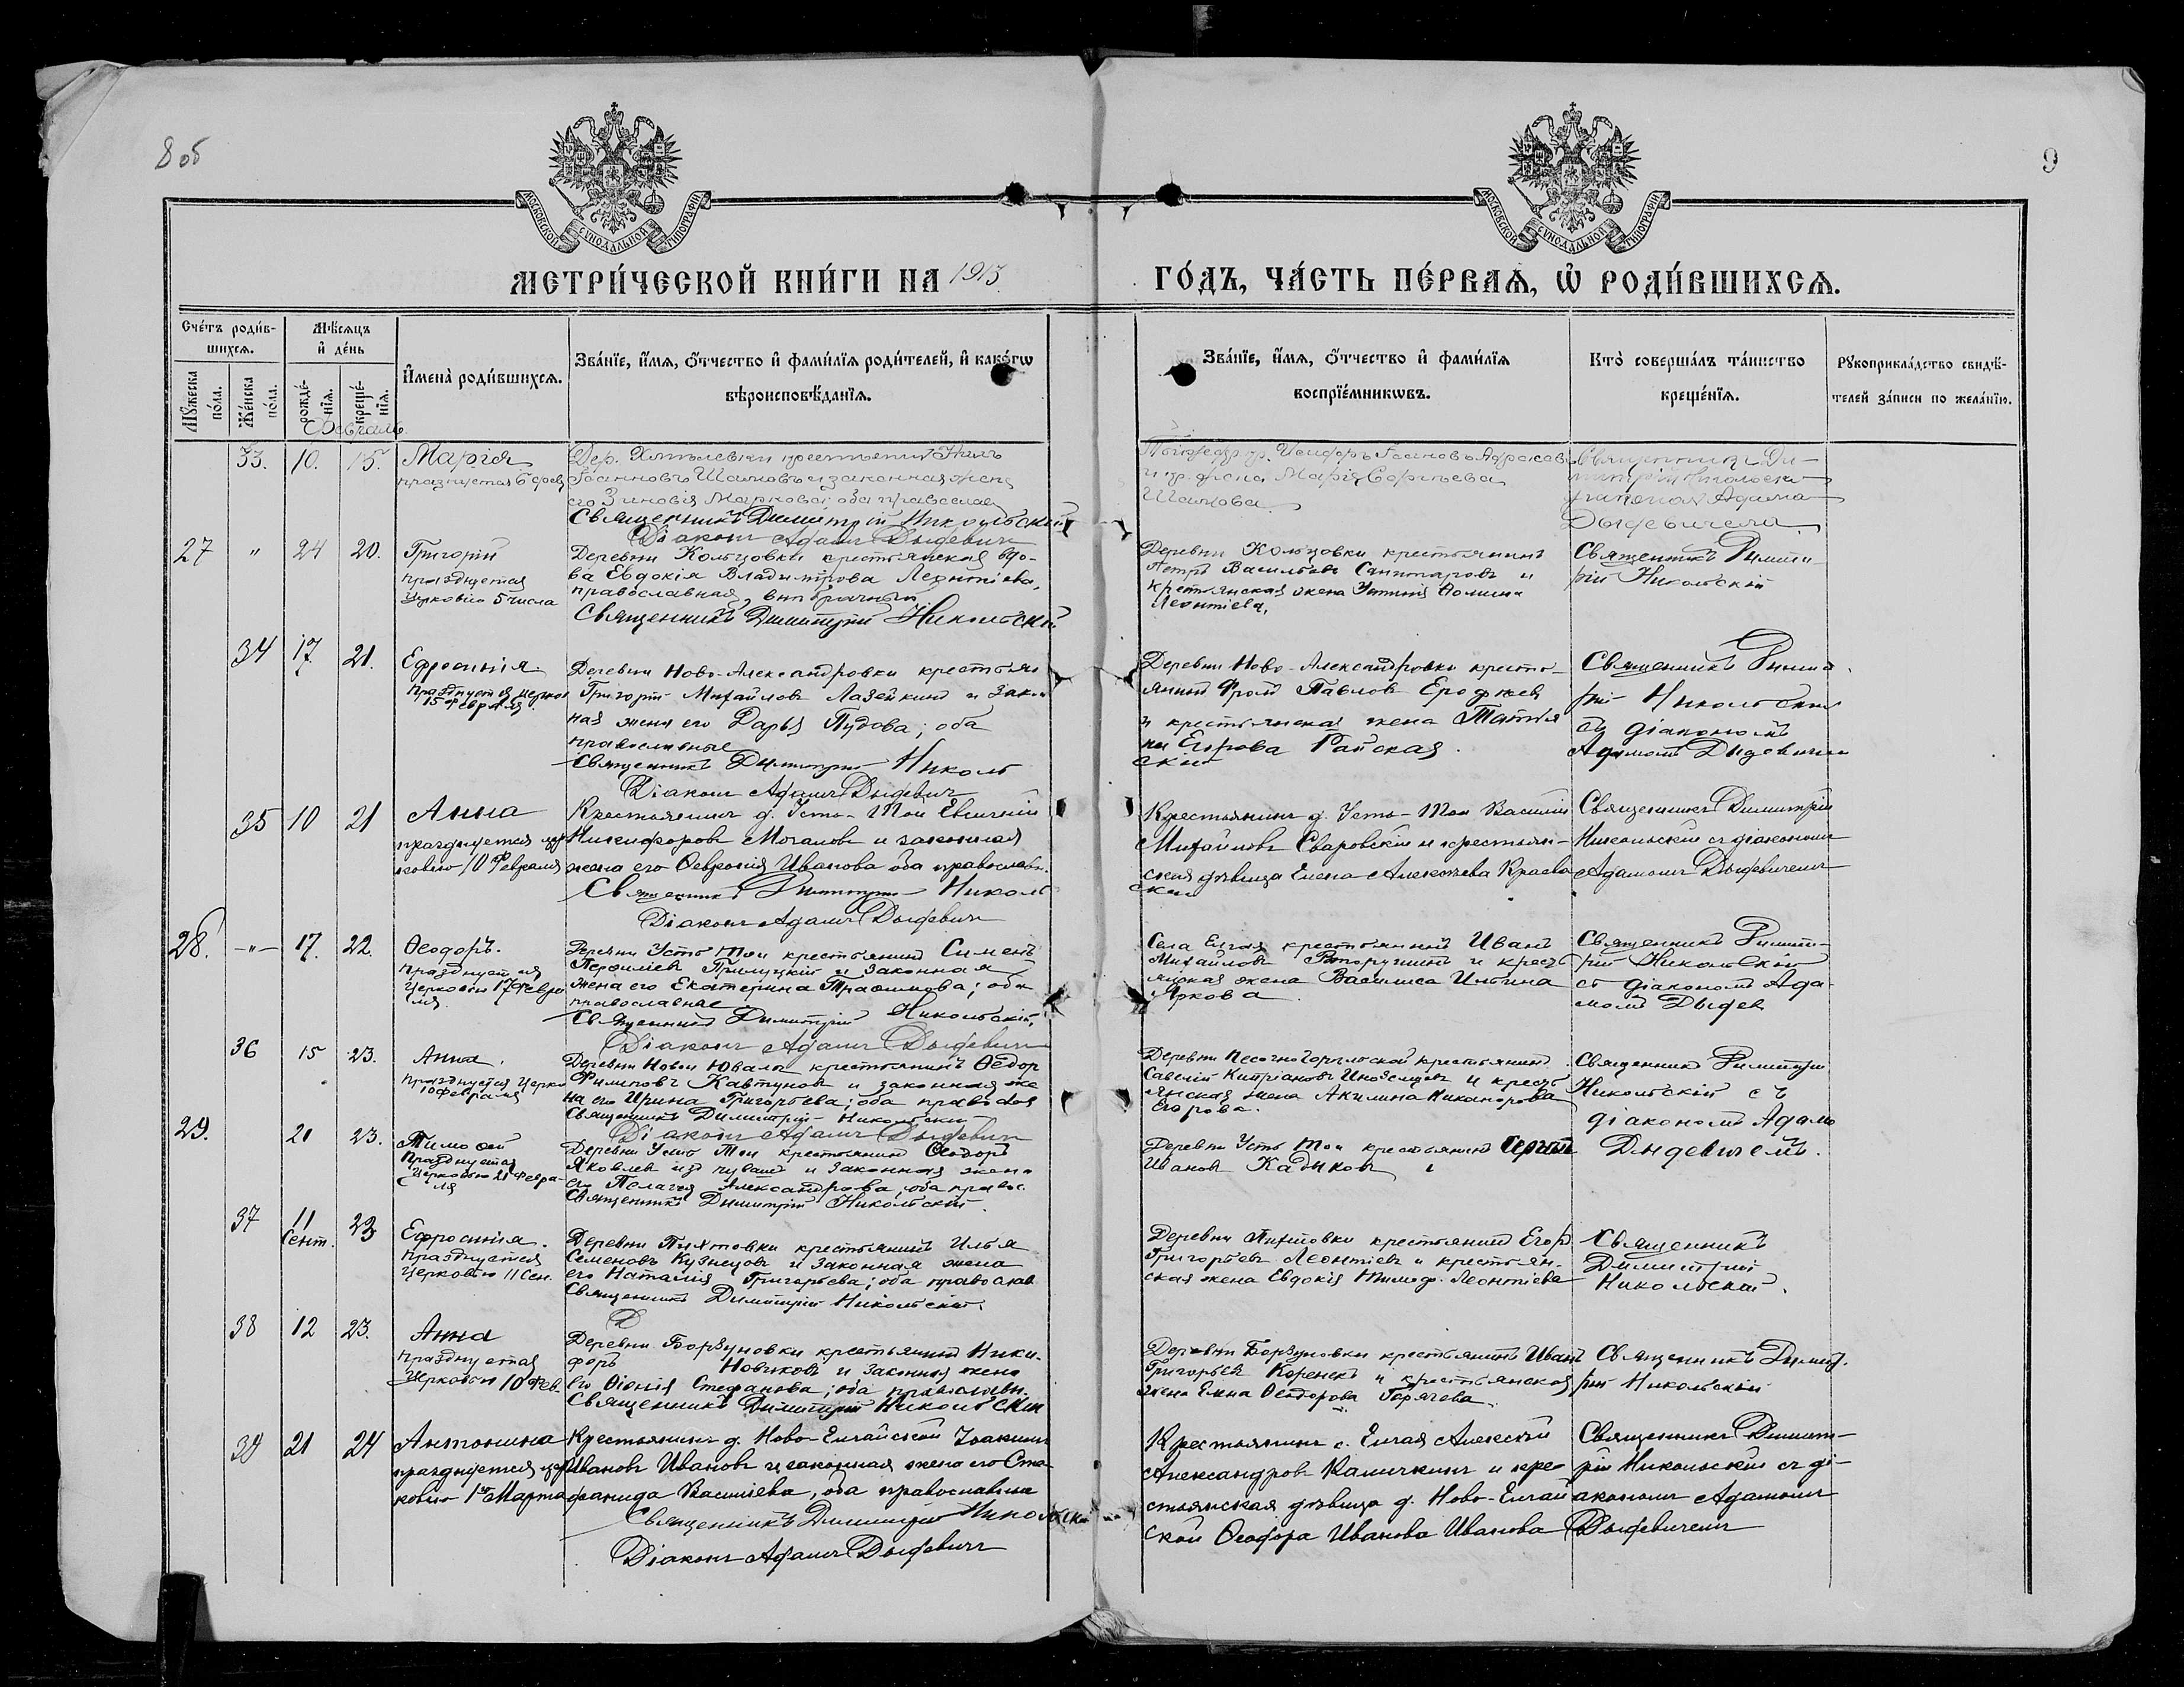 8 об
9
МОСКОВСКОЙ СѴНОДАЛЬНОЙ ТИПОГРАФІИ.
МОСКОВСКОЙ СѴНОДАЛЬНОЙ ТИПОГРАФІИ.
МЕТРИ́ЧЕСКОЙ КНИ́ГИ НА 1913
ГО́ДЪ, ЧА́СТЬ ПЕ́РВАѦ, Ѡ҆ РОДИ́ВШИХСѦ.
Сче́тъ роди́в-
шихсѧ.
Мѣ́сѧцъ
и҆ де́нь
Мꙋ́жеска по́ла.
Же́нска по́ла.
рожде́-
нїѧ.
креще́-
нїѧ.
И҆мена̀ роди́вшихсѧ.
Зва́нїе, и҆́мѧ, ѻ҆́тчество и҆ фами́лїѧ роди́телей, и҆ како́гѡ
вѣроисповѣ́данїѧ.
Зва́нїе, и҆́мѧ, ѻ҆́тчество и҆ фами́лїѧ
воспрїе́мникѡвъ.
Кто̀ соверша́лъ та́инство
креще́нїѧ.
Рꙋкоприкла́дство свидѣ́-
телей за́писи по жела́нїю.
Февраль.
33. 10. 15. Марія
Іоанновъ Шаховъ и законная жена
его Зиновія Маркова; оба православ
Священникъ Димитрій Никольскій
Діаконъ Адамъ Дыдевич
Марія Сергѣева
Шахова
Священникъ Ди-
митрій Никольскій
діакономъ Адамо
Дыдевичемъ
27 " 24 20. Григорій
празднуется
Церковію 5 числа
Деревни Кольцовки крестьянская вдо-
ва Евдокія Владимірова Леонтіева,
православная, внѣбрачный
Священникъ Димитрій Никольскій
Деревни Кольцовки крестьянинъ
Петръ Васильевъ и
крестьянская жена
Леонтіева.
Священникъ Димит-
рій Никольскій
34 17 21. Ефросинія
празднуется церков
15 февраля.
Деревни Ново-Александровки крестьян
Григорій Михайловъ Лазайкинъ и закон
ная жена его Дарья Пудова; оба
православные
Священникъ Димитрій Николь
скій
Діаконъ Адамъ Дыдевич
Деревни Ново-Александровки кресть-
янинъ Фролъ Павловъ Ерофеев
и крестьянская жена Татья
на Егорова Райская.
Священникъ Дими
рій Никольскій
съ діакономъ
Адамомъ Дыдевичем
35 10 21 Анна
празднуется цер
ковію 10 Февраля
Крестьянинъ д. Усть-Тои Евгеній
Никифоровъ Мочалов и законная
жена его Февронія Иванова оба православн.
Священникъ Димитрій Николь
скій
Діаконъ Адамъ Дыдевич
Крестьянинъ д. Усть-Тои Василій
Михайловъ Сваровскій и крестьян-
ская дѣвица Елена Алексѣева Краева
Священникъ Димитрій
Никольскій съ діакономъ
Адамомъ Дыдевичемъ
28. -"- 17. 22. Ѳеодоръ.
празднуется
Церковію 17 Февра
ля.
Деревни Усть Тои крестьянинъ Сименъ
Прилуцкій и законная
жена его Екатерина Трафимова; оба
православные
Священникъ Димитрій Никольскій,
Діаконъ Адамъ Дыдевич
Села Елгая крестьянинъ Иванъ
Михайловъ и кресть
янская жена Василиса Ильина
Яркова
Священникъ Димит-
рій Никольскій
съ діакономъ Ада-
момъ Дыдев
36 15 23. Анна.
празднуется Церко
10 февраля
Деревни Новой Ювалы крестьянинъ Ѳедор
Филиповъ Кавтунов и законная же
на его Ирина Григорьева; оба правосл
Священникъ Димитрій Никольскій
Діаконъ Адамъ Дыдевич
крестьянинъ
Савелій Кипріановъ Иноземцевъ и кресть
янская жена Акилина Никанорова
Егорова.
Священник Димитрій
Никольскій съ
діакономъ Адамо
Дыдевичемъ.
29. 21 23. Тимоѳей
Празднуется
Церковію 21 Февра-
ля
Деревни Усть Тои крестьянинъ Ѳеодоръ
Яковлев изъ чувашъ и законная жена
его Пелагея Александрова, оба правос.
Священникъ Димитрій Никольскій.
Деревни Усть Тои крестьянинъ Сергѣй
Иванов Кадыков
37 11 Сент. 23 Ефросинія.
Празднуется
Церковію 11 Сен.
Деревни Пихтовки крестьянинъ Илья
Семеновъ Кузнецовъ и законная жена
его Наталія Григорьева; оба православ
Священникъ Димитрій Никольскій.
Деревни Пихтовки крестьянинъ Егоръ
Григорьевъ Леонтіевъ и крестьян-
ская жена Евдокія Тимоф. Леонтіева
Священникъ
Димитрій
Никольскій.
38 12 23. Анна
Празднуется
Церковію 10 Фев.
Деревни Борзуновки крестьянинъ Ники-
форъ Новиковъ и законная жена
его Ѳіонія Стефанова; оба православн.
Священникъ Димитрій Никольскій
Деревни Борзуновки крестьянинъ Иванъ
Григорьевъ и крестьянская
жена Елена Ѳеодорова Горячева.
Священникъ Димит.
рій Никольскій
39 21 24 Антонина
празднуется цер
ковію 1го Марта
Крестьянинъ д. Ново-Елгайской Іоакимъ
Ивановъ Ивановъ и законная жена его Сте-
фанида Васильева, оба православные
Священникъ Димитрій Никольскій
Діаконъ Адамъ Дыдевич
Крестьянинъ с. Елгая Алексѣй
Александровъ Каличкинъ и кре-
стьянская дѣвица д. Ново-Елгай
ской Ѳеодора Иванова Иванова
Священникъ Димит-
рій Никольскій съ ді-
акономъ Адамомъ
Дыдевичемъ